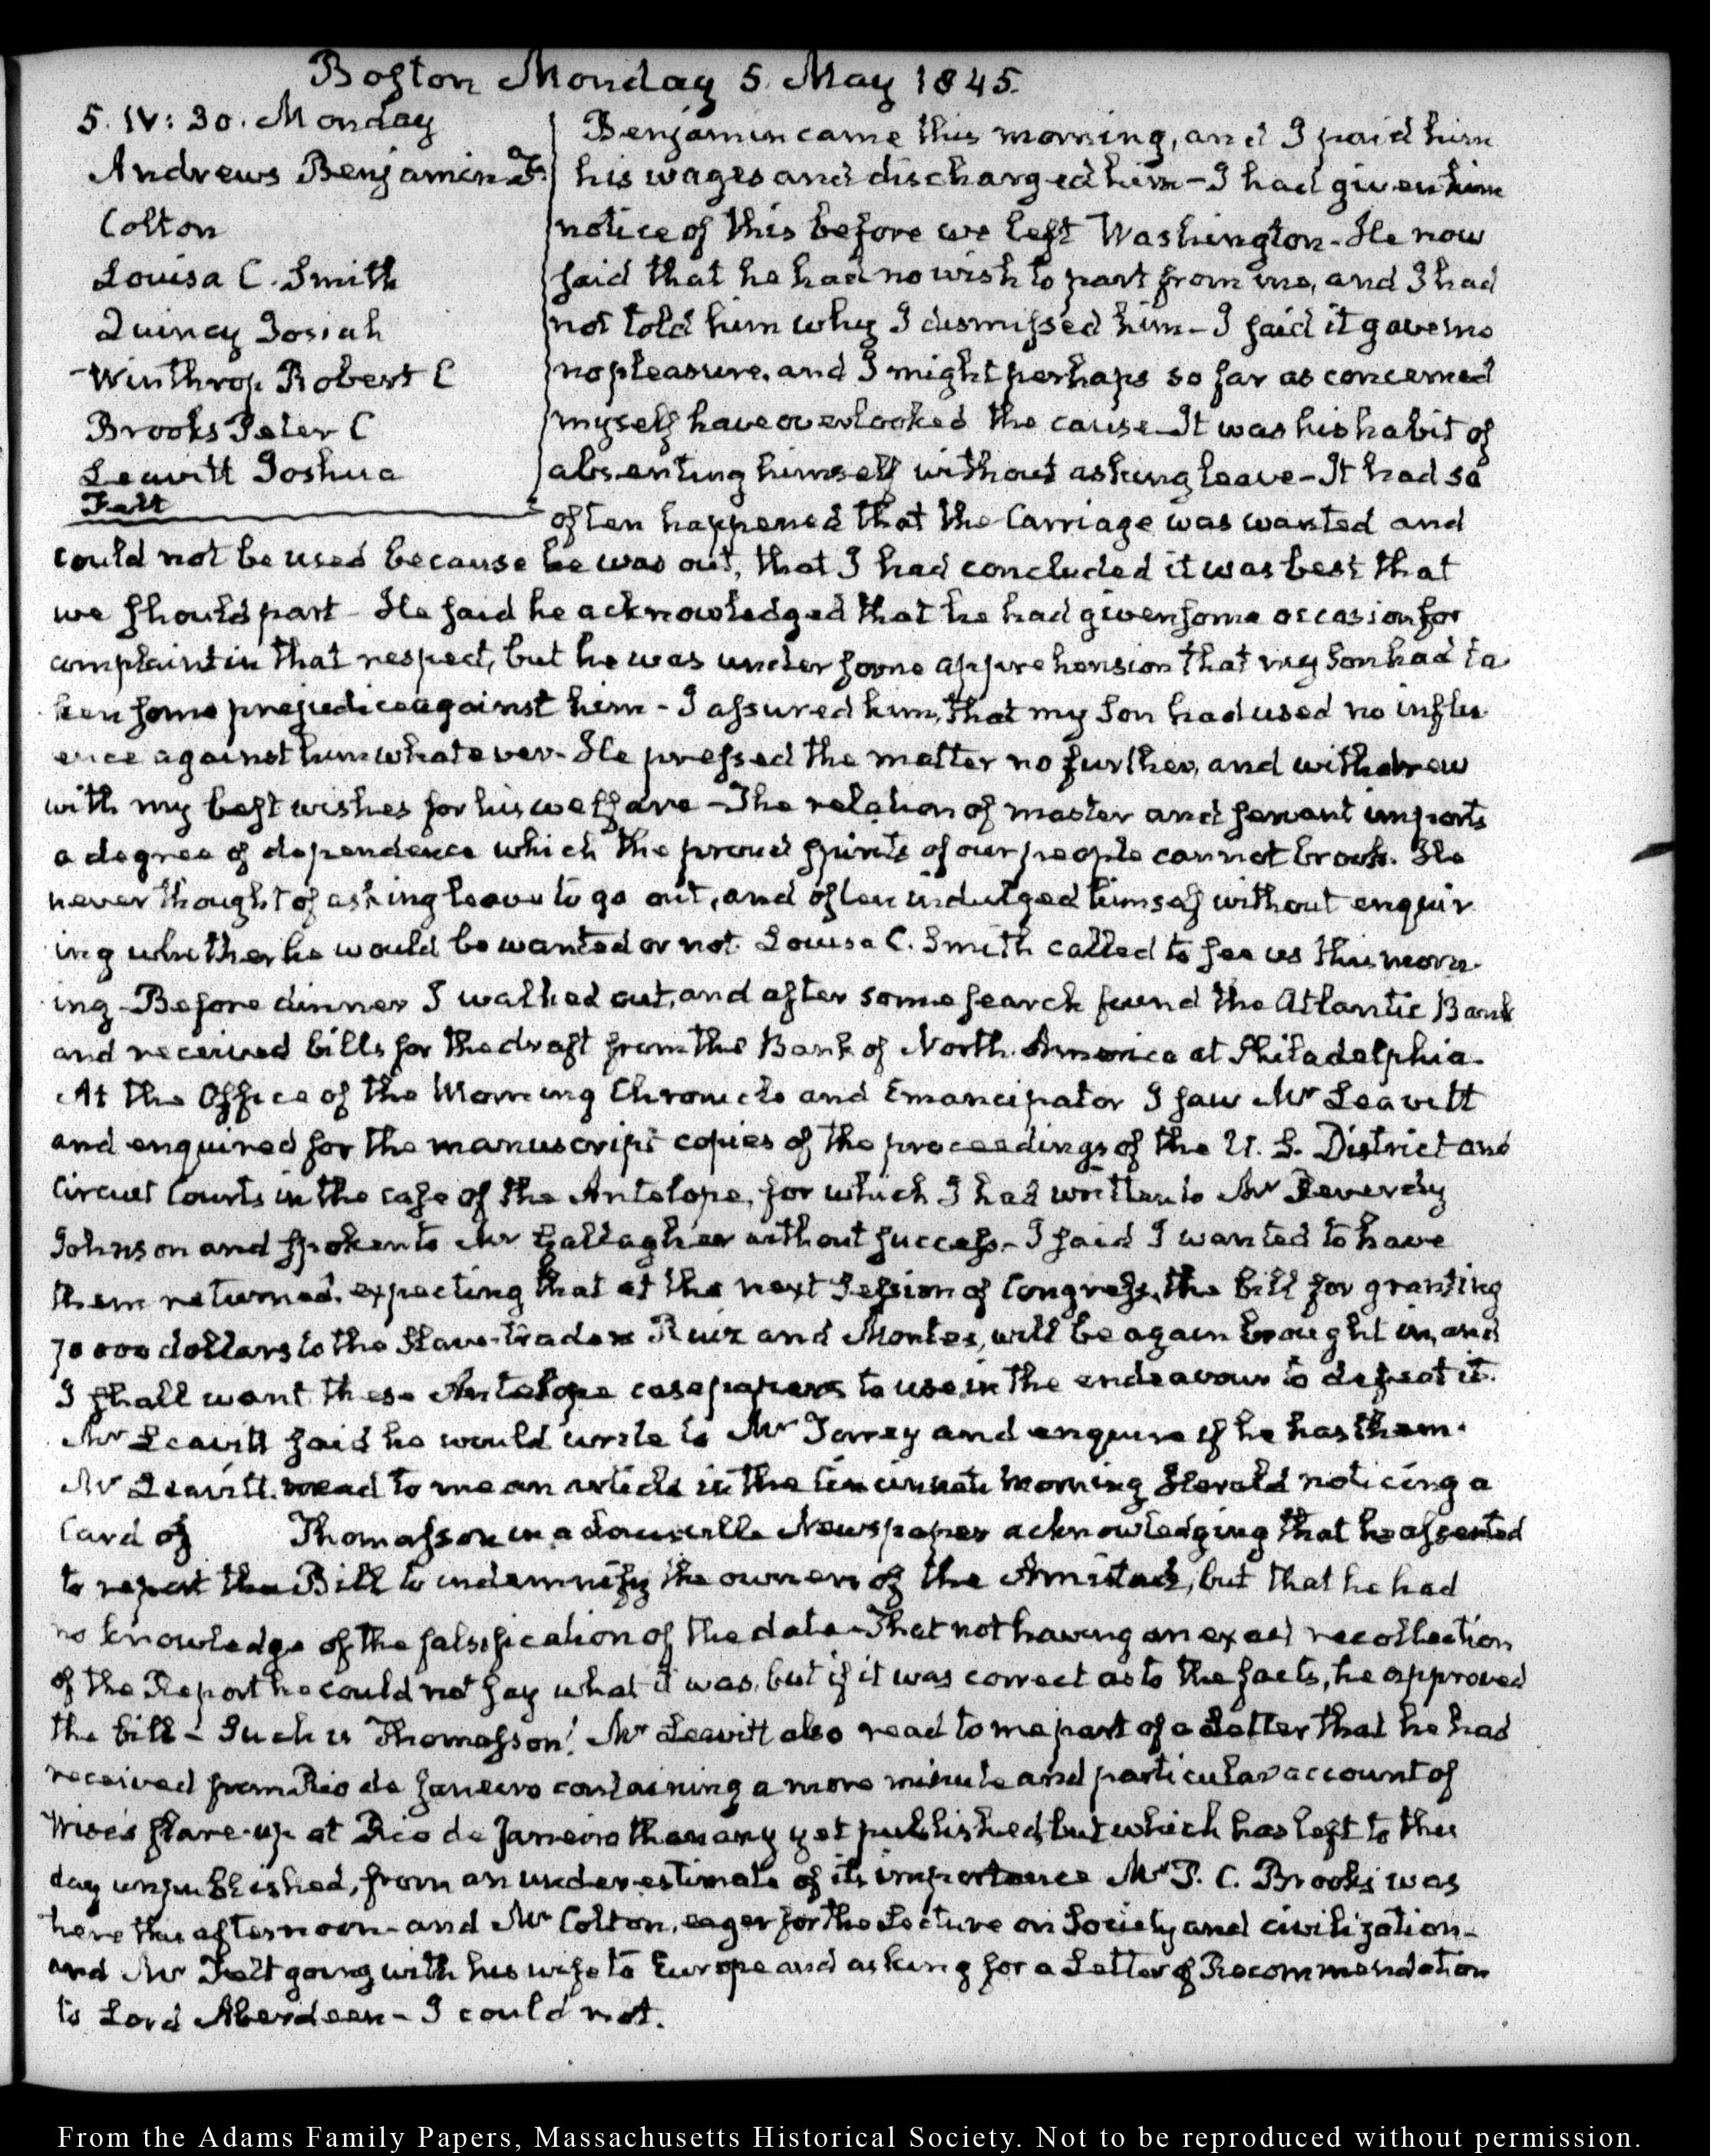 Boston Monday 5. May 1845.
5. IV: 30. Monday
Andrews Benjamin F.
Colton
Louisa C. Smith
Quincy Josiah
Winthrop Robert C
Brooks Peter C
Leavitt Joshua
Felt
Benjamin came this morning, and I paid him
his wages and discharged him - I had given him
notice of this before we left Washington - He now
said that he had no wish to part from me, and I had
not told him why I dismissed him - I said it gave me
no pleasure, and I might perhaps so far as concerned
myself have overlooked the cause - It was his habit of
absenting himself without asking leave - It had so
often happened that the Carriage was wanted and
could not be used because he was out, that I had concluded it was best that
we should part - He said he acknowledged that he had given some occasion for
complaint in that respect, but he was under some apprehension that my Son had ta
ken some prejudice against him - I assured him, that my Son had used no influ
ence against him whatever - He pressed the matter no further, and withdrew
with my best wishes for his welfare - The relation of master and servant imports
a degree of dependence which the proud spirits of our people cannot brook. He
never thought of asking leave to go out, and often indulged himself without enquir
ing whether he would be wanted or not. Louisa C. Smith called to see us this morn
ing - Before dinner I walked out, and after some search found the Atlantic Bank
and received bills for the draft from the Bank of North America at Philadelphia.
At the Office of the Morning Chronicle and Emancipator I saw Mr Leavitt
and enquired for the manuscript copies of the proceedings of the U. S. District and
Circuit Courts in the case of the Antelope, for which I had written to Mr Reverdy
Johnson and spoken to Mr Gallagher without success - I said I wanted to have
them returned, expecting that at the next Session of Congress, the bill for granting
70 000 dollars to the Slave-traders Ruiz and Montes, will be again brought in, and
I shall want these Antelope case papers to use in the endeavour to defeat it.
Mr Leavitt said he would write to Mr Torrey and enquire if he has them.
Mr Leavitt read to me an article in the Cincinnati Morning Herald noticing a
Card of Thomasson in a Louisville Newspaper acknowledging that he assented
to report the Bill to indemnify the owners of the Amistad, but that he had
no knowledge of the falsification of the data - That not having an exact recollection
of the Report he could not say what it was, but if it was correct as to the facts, he approved
the bill - Such is Thomasson! Mr Leavitt also read to me part of a Letter that he had
received from Rio de Janeiro containing a more minute and particular account of
Wise's flare-up at Rio de Janeiro than any yet published, but which has left to this
day unpublished, from an under-estimate of its importance Mr P. C. Brooks was
here this afternoon - and Mr Colton, eager for the Lecture on Society and civilization -
and Mr Felt going with his wife to Europe and asking for a Letter of Recommendation
to Lord Aberdeen - I could not.
From the Adams Family Papers, Massachusetts Historical Society. Not to be reproduced without permission.